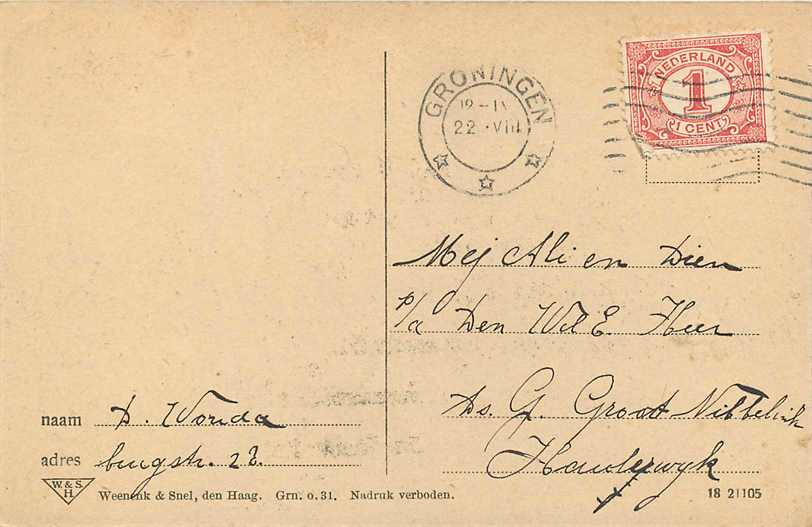 GRONINGEN
22 · VIII
NEDERLAND
1
1 CENT
Mej Ali en Dien
p/a Den Wel E. Heer
Ds. G. Groot Nibbelink
Haulerwyk
naam D. Wouda
adres
W. & S.
H.
Weenenk & Snel, den Haag. Grn. o. 31. Nadruk verboden.
18 21105